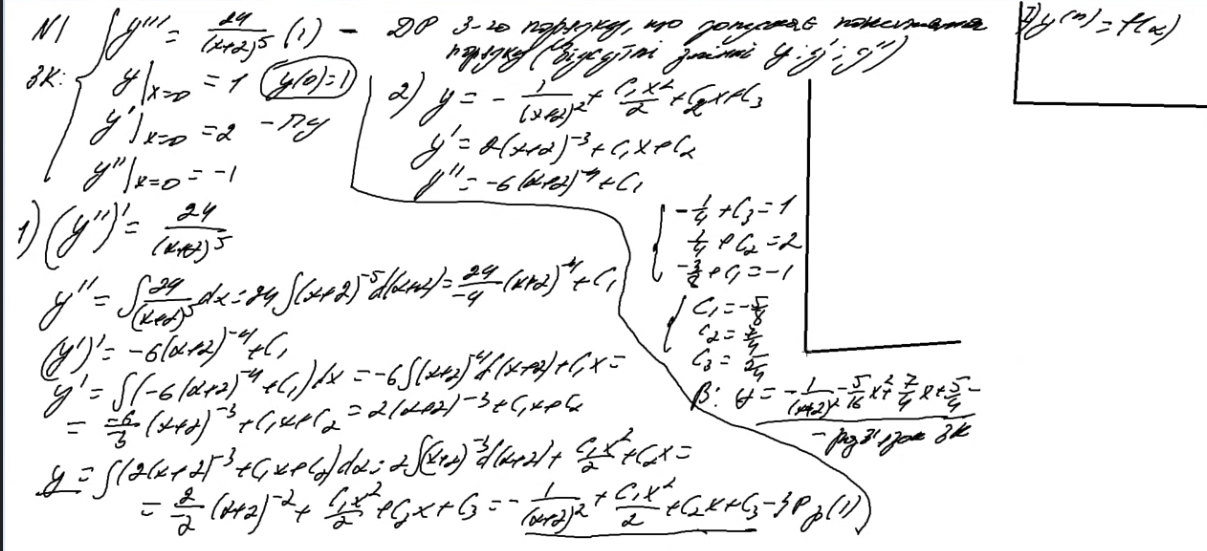 N1 y''' = 24/(x+2)^5 (1) – ДР 3-го порядку, що допускає пониження
порядку (відсутні змінні y; y'; y'')
I) y^(n) = f(x)
ЗК: y|x=0 = 1 (y(0)=1)
y'|x=0 = 2 – ПУ
y''|x=0 = -1
1) (y'')' = 24/(x+2)^5
y'' = ∫ 24/(x+2)^5 dx = 24 ∫(x+2)^-5 d(x+2) = 24/-4 (x+2)^-4 + C1
(y')' = -6(x+2)^-4 + C1
y' = ∫(-6(x+2)^-4 + C1)dx = -6∫(x+2)^-4 d(x+2) + C1x =
= -6/-3 (x+2)^-3 + C1x + C2 = 2(x+2)^-3 + C1x + C2
y = ∫(2(x+2)^-3 + C1x + C2)dx = 2∫(x+2)^-3 d(x+2) + C1x^2/2 + C2x =
= 2/-2 (x+2)^-2 + C1x^2/2 + C2x + C3 = - 1/(x+2)^2 + C1x^2/2 + C2x + C3 – ЗР (1)
2) y = - 1/(x+2)^2 + C1x^2/2 + C2x + C3
y' = 2(x+2)^-3 + C1x + C2
y'' = -6(x+2)^-4 + C1
-1/4 + C3 = 1
1/4 + C2 = 2
-3/8 + C1 = -1
C1 = -5/8
C2 = 7/4
C3 = 5/4
В: y = - 1/(x+2)^2 - 5/16 x^2 + 7/4 x + 5/4 –
– розв'язок ЗК